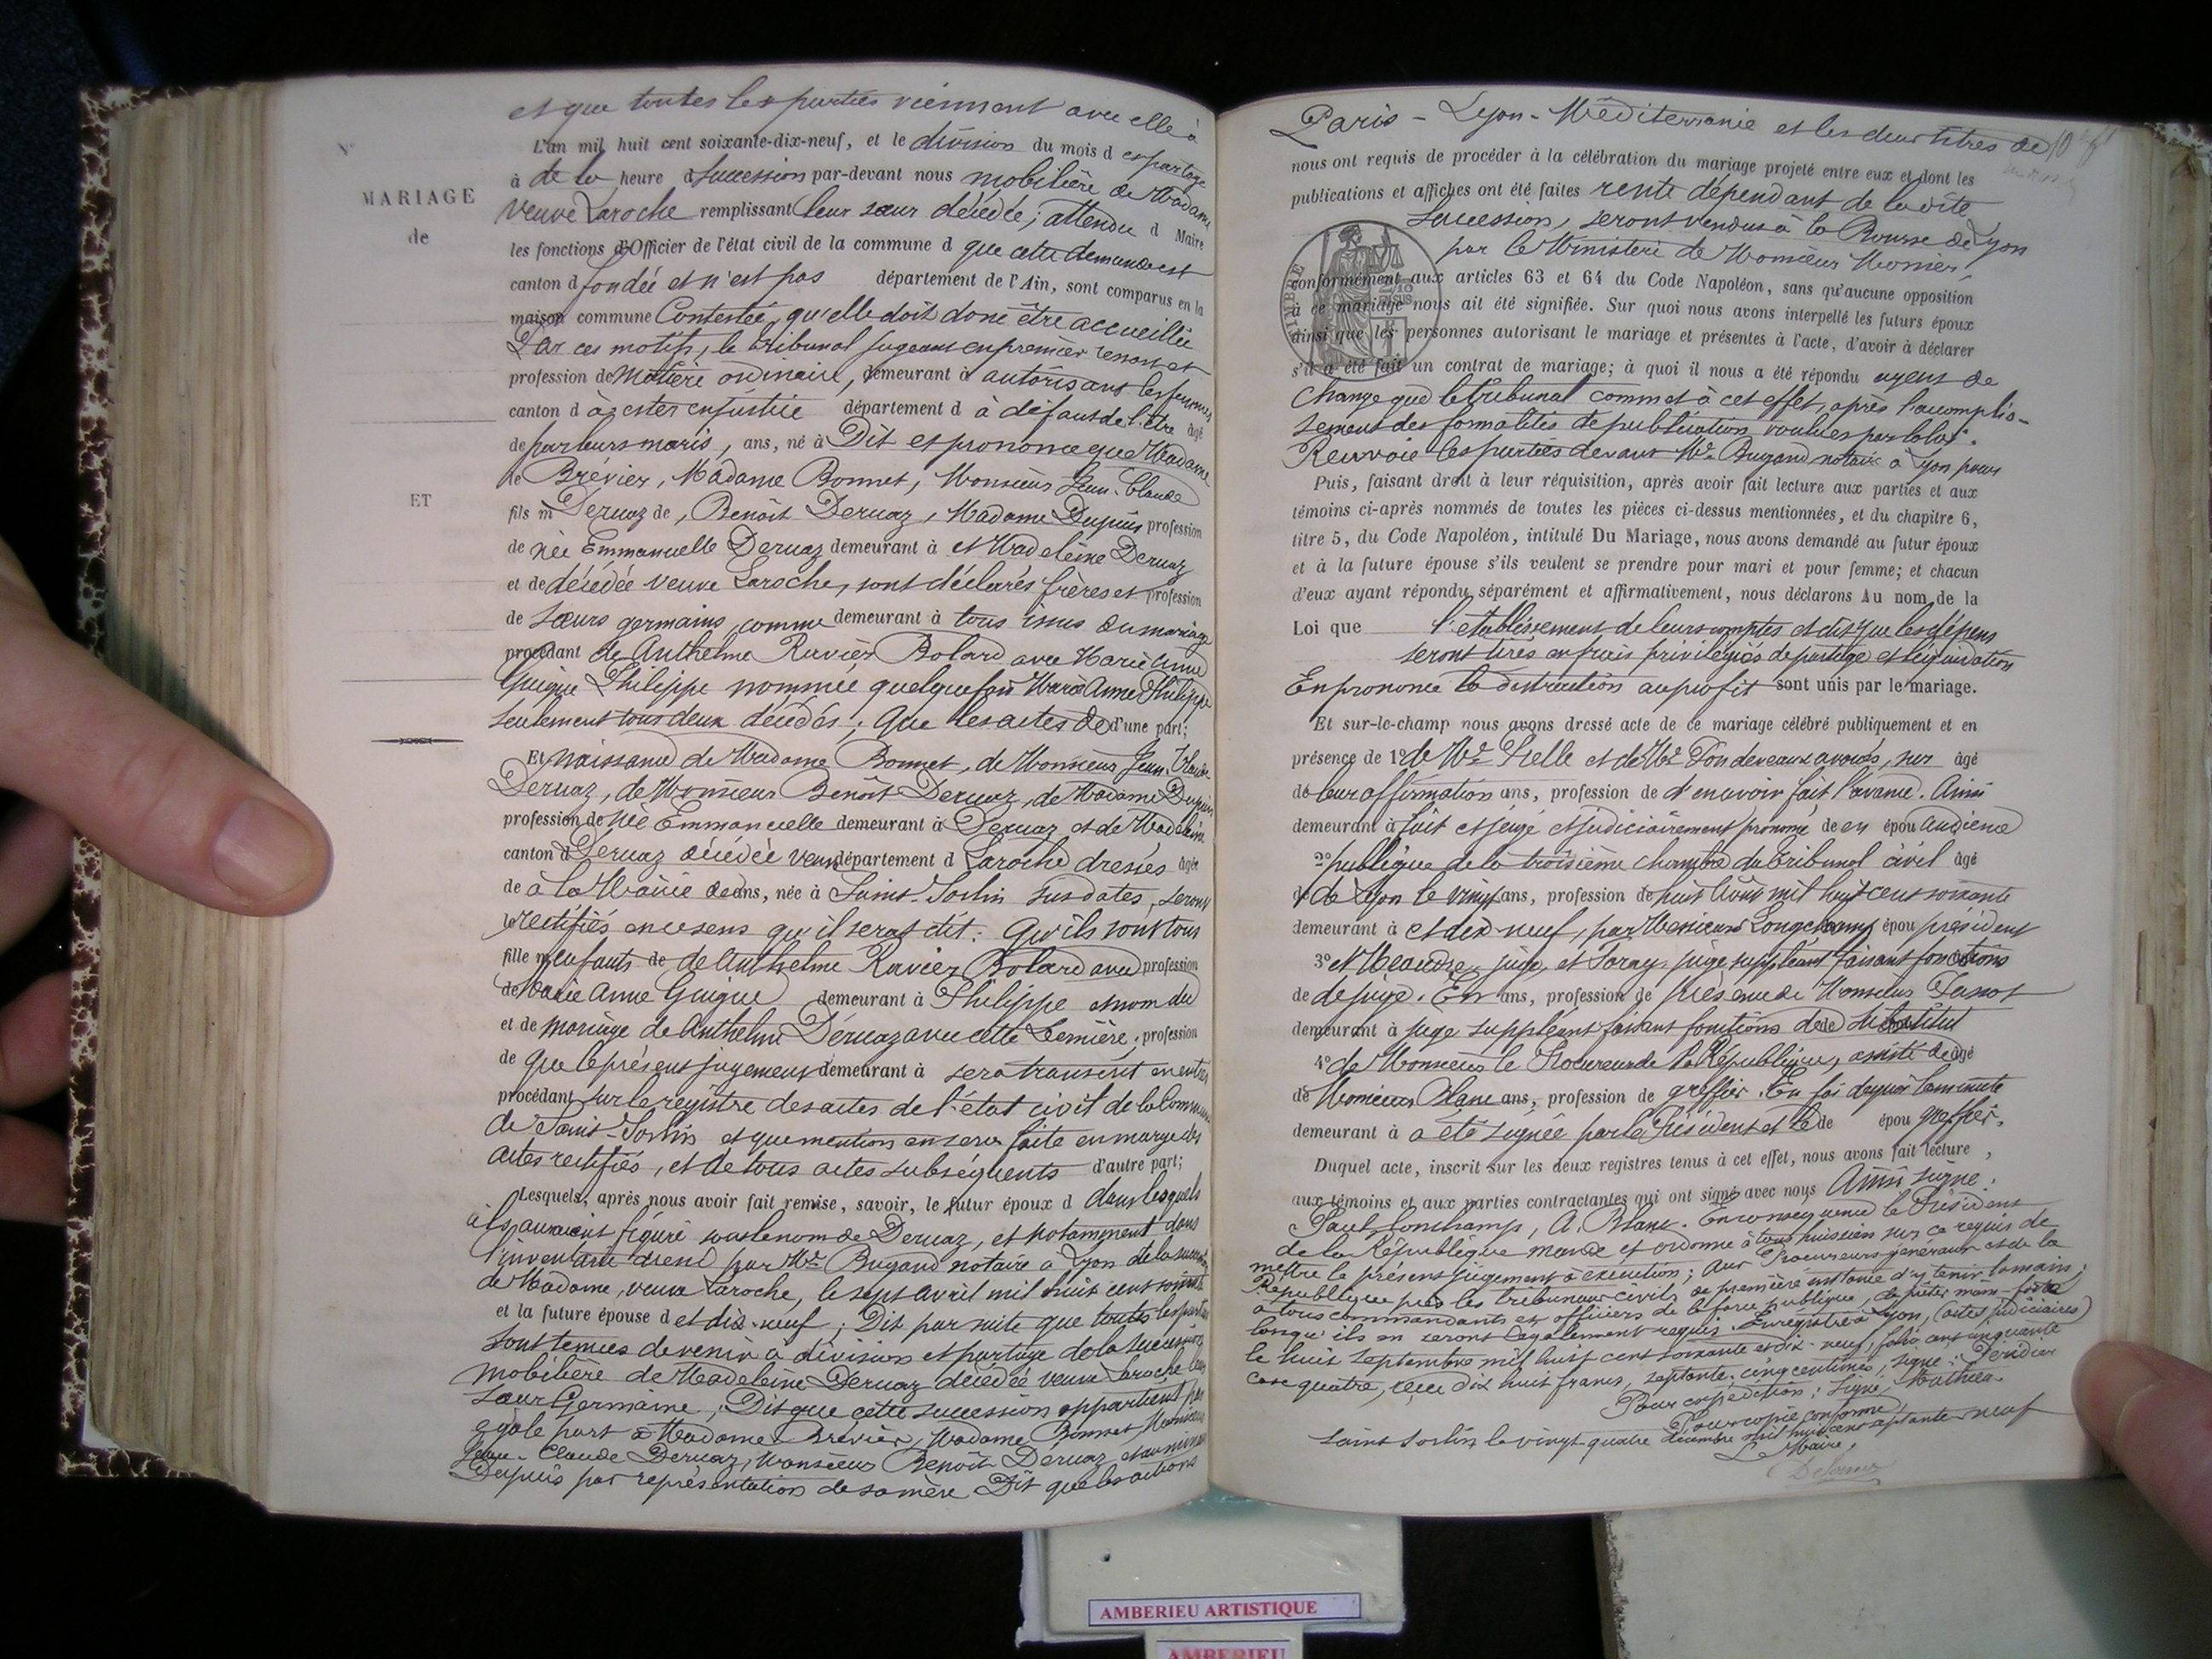 et que toutes les parties viennent avec elle à
L'an mil huit cent soixante-dix-neuf, et le division du mois d et partage
à de la heure d succession par-devant nous mobilière de Madame
veuve Laroche remplissant leur sœur décédée; attendu d Maire
les fonctions d'Officier de l'état civil de la commune d que cette demande est
canton d fondée et n'est pas département de l'Ain, sont comparus en la
maison commune Contestée, qu'elle doit donc être accueillie
MARIAGE
de
Par ces motifs, le tribunal jugeant en premier ressort et
profession de Matière ordinaire, demeurant à autorisant les femmes
canton d à ester en justice département d à défaut de l'être âgé
de par leurs maris, ans, né à Dit et prononce que Madame
de Brévier, Madame Bonnet, Monsieur Jean-Claude
ET
fils m Dervaz de, Benoît Dervaz, Madame Dupuis profession
de née Emmanuelle Dervaz demeurant à et Madeleine Dervaz
et de décédée veuve Laroche, sont déclarés frères et profession
de sœurs germains, comme demeurant à tous issus du mariage
procédant de Anthelme Ravier Bolard avec Marie Anne
Guigue Philippe nommée quelquefois Marie Anne Philippe
seulement tous deux décédés; Que les actes de d'une part;
Et naissance de Madame Bonnet, de Monsieur Jean-Claude
Dervaz, de Monsieur Benoît Dervaz, de Madame Dupuis
profession de née Emmanuelle demeurant à Dervaz et de Madeleine
canton d Dervaz décédée veuve département d Laroche dressés âgée
de à la Mairie de ans, née à Saint-Sorlin susdates, seront
rectifiés en ce sens qu'il serat dit: Qu'ils sont tous
fille m enfants de de Anthelme Ravier Bolard avec profession
de Marie Anne Guigue demeurant à Philippe et non du
et de mariage de Anthelme Dervaz avec cette dernière; profession
de que le présent jugement demeurant à sera transcrit en entier
procédant sur le registre des actes de l'état civil de la Commune
de Saint-Sorlin et que mention en sera faite en marge des
actes rectifiés, et de tous actes subséquents d'autre part;
Lesquels, après nous avoir fait remise, savoir, le futur époux d dans lesquels
ils auraient figuré sous le nom de Dervaz, et notamment dans
l'inventaire dressé par Me Bugand notaire à Lyon de la succession
de Madame, veuve Laroche, le sept avril mil huit cent soixante
et la future épouse d et dix-neuf; Dit par suite que toutes les parties
sont tenues de venir à division et partage de la succession
mobilière de Madeleine Dervaz décédée veuve Laroche leur
sœur Germaine; Dit que cette succession appartient par
égale part à Madame Brévier, Madame Bonnet Monsieur
Jean-Claude Dervaz, Monsieur Benoît Dervaz,
Dupuis par représentation de sa mère Dit que les actions
Paris - Lyon - Méditerranée et les deux titres de
nous ont requis de procéder à la célébration du mariage projeté entre eux et dont les
publications et affiches ont été faites rente dépendant de la dite
succession, seront vendus à la Bourse de Lyon
par le Ministère de Monsieur
conformément aux articles 63 et 64 du Code Napoléon, sans qu'aucune opposition
à ce mariage nous ait été signifiée. Sur quoi nous avons interpellé les futurs époux
ainsi que les personnes autorisant le mariage et présentes à l'acte, d'avoir à déclarer
s'il a été fait un contrat de mariage; à quoi il nous a été répondu agent de
TIMBRE
Change que le tribunal commet à cet effet, après l'accomplis-
sement des formalités de publication voulues par la loi.
Renvoie les parties devant Me Bugand notaire à Lyon pour
Puis, faisant droit à leur réquisition, après avoir fait lecture aux parties et aux
témoins ci-après nommés de toutes les pièces ci-dessus mentionnées, et du chapitre 6,
titre 5, du Code Napoléon, intitulé Du Mariage, nous avons demandé au futur époux
et à la future épouse s'ils veulent se prendre pour mari et pour femme; et chacun
d'eux ayant répondu séparément et affirmativement, nous déclarons Au nom de la
Loi que l'établissement de leurs comptes et dit que les dépens
seront tirés en frais privilégiés de partage et liquidation
En prononce la distraction au profit sont unis par le mariage.
Et sur-le-champ nous avons dressé acte de ce mariage célébré publiquement et en
présence de 1º de Me et de Me Fondeveaux avoués, sur âgé
de leur affirmation ans, profession de d'en avoir fait l'avance. Ainsi
demeurant à fait et jugé et judiciairement prononcé de en épou audience
2º publique de la troisième chambre du tribunal civil âgé
de de Lyon le vingt ans, profession de huit Août mil huit cent soixante
demeurant à et dix-neuf, par Messieurs Longchamp épou président
3º et Meaudre juge, et juge suppléant faisant fonctions
de de juge. En ans, profession de présence de Monsieur
demeurant à juge suppléant faisant fonctions de de substitut
4º de Monsieur le Procureur de la République, assisté de âgé
de Monsieur Blanc ans, profession de greffier. En foi de quoi la minute
demeurant à a été signée par le Président et le de épou greffier.
Duquel acte, inscrit sur les deux registres tenus à cet effet, nous avons fait lecture,
aux témoins et aux parties contractantes qui ont signé avec nous Ainsi signé:
Paul Lonchamp, A. Blanc. En conséquence le Président
de la République mande et ordonne à tous huissiers sur ce requis de
mettre le présent jugement à exécution; Aux Procureurs généraux et de la
République près les tribunaux civils de première instance d'y tenir la main;
à tous commandants et officiers de la force publique, de prêter main-forte
lorsqu'ils en seront légalement requis. Enregistré à Lyon, (actes judiciaires)
le huit Septembre mil huit cent soixante et dix-neuf, folio cent cinquante
case quatre, reçu dix huit francs, septante-cinq centimes, signé:
Pour expédition: Signé, Mathieu.
Pour copie conforme,
Saint Sorlin le vingt-quatre décembre mil huit cent septante neuf
Le Maire,
AMBERIEU ARTISTIQUE
AMBERIEU